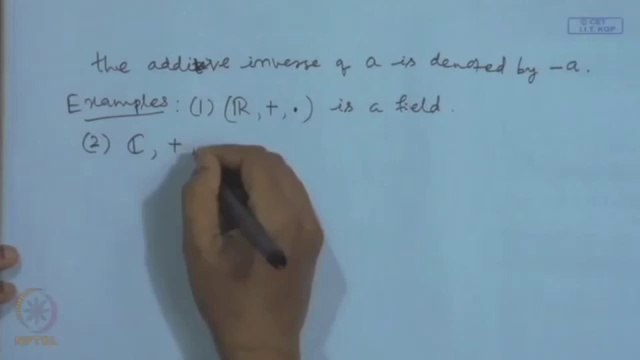 © CET
I.I.T. KGP
the additive inverse of a is denoted by -a.
Examples: (1) (ℝ, +, •) is a field.
(2) ℂ, +,
NPTEL